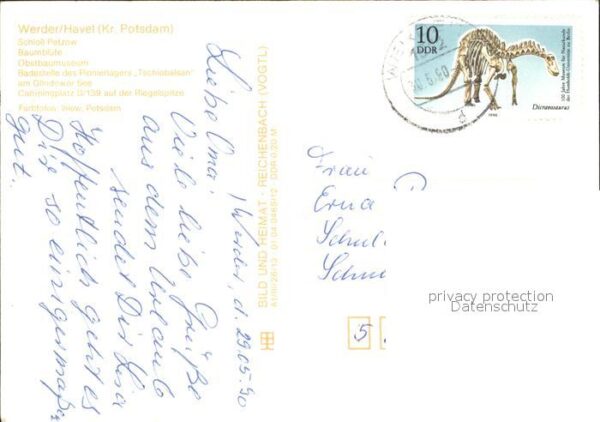 Werder/Havel (Kr. Potsdam)
Schloß Petzow
Baumblüte
Obstbaumuseum
Badestelle des Pionierlagers "Tschiolbaisan"
am Glindower See
Campingplatz D/139 auf der Riegelspitze
Farbfotos:
Potsdam
Werder, d. 29.05.90
Liebe Oma!
Viele liebe Grüße
aus dem Urlaub
sendet Dir
Hoffentlich geht es
Dir so einigermaßen
gut.
BILD UND HEIMAT · REICHENBACH (VOGTL)
A1/III/26/13 01 04 0465/12 DDR 0,20 M
10
DDR
100 Jahre Museum für Naturkunde
der Humboldt-Universität zu Berlin
Dicraeosaurus
1990
Frau
Erna
5
privacy protection
Datenschutz